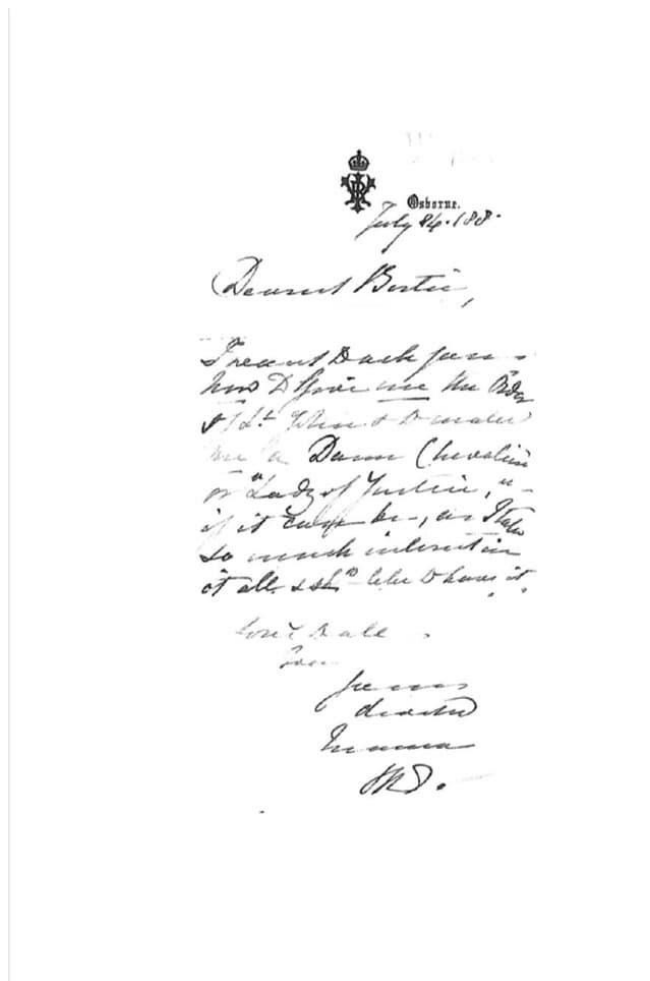 Osborne.
July 24. 188
Dearest Bertie,
I meant to ask you
how to give me the Order
of St. John & to make
me a Dame Chevalière
or "Lady of Justice,"
if it can be, as I take
so much interest in
it all & shd like to have it.
Love to all.
Ever
yours
devoted
Mama
VRI.